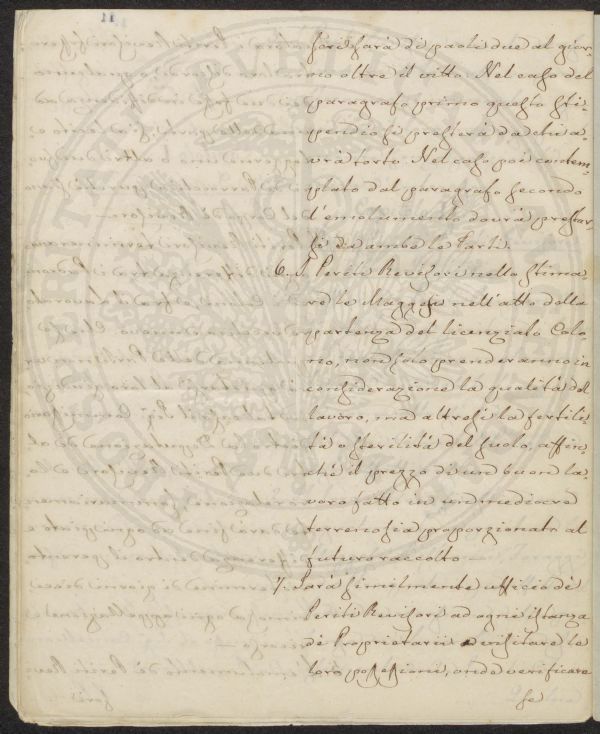 sori sarà di paoli due al gior-
no oltre il vitto. Nel caso del
paragrafo primo questo sti-
pendio si presterà da chi a-
vrà torto. Nel caso poi contem-
plato dal paragrafo secondo
l'emolumento dovrà prestar-
si da ambe le Parti.
6. I Periti Revisori nello stima-
re le Maggesi nell'atto della
partenza del licenziato Colo-
no, non solo prenderanno in
considerazione la qualità del
lavoro, ma altresì la fertili-
tà o sterilità del suolo, affin-
chè il prezzo di un buon la-
voro fatto in un mediocre
terreno sia proporzionato al
futuro raccolto.
7. Sarà similmente ufficio dè
Periti Revisori ad ogni istanza
dè Proprietarii visitare le
loro possessioni, onde verificare
se